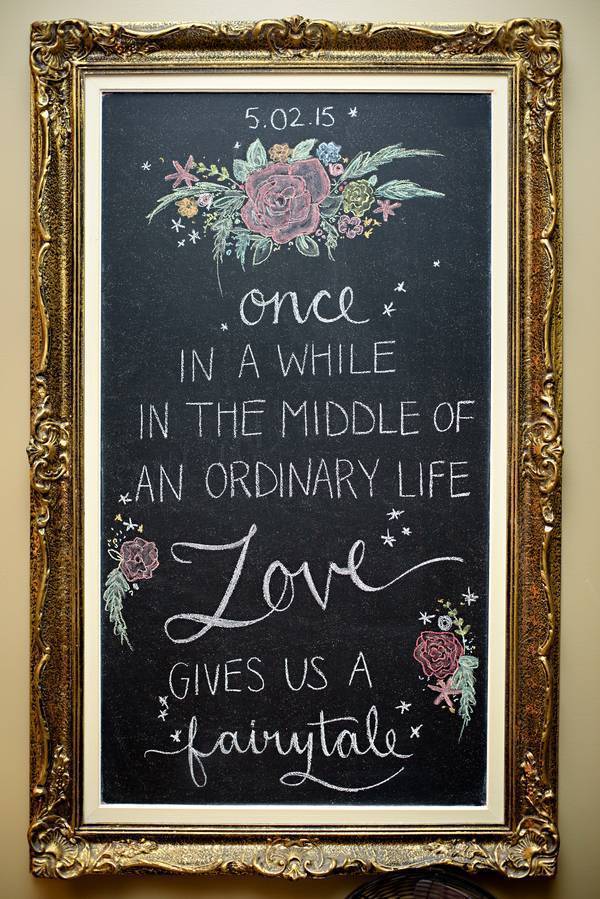 5.02.15
once
IN A WHILE
IN THE MIDDLE OF
AN ORDINARY LIFE
Love
GIVES US A
fairytale